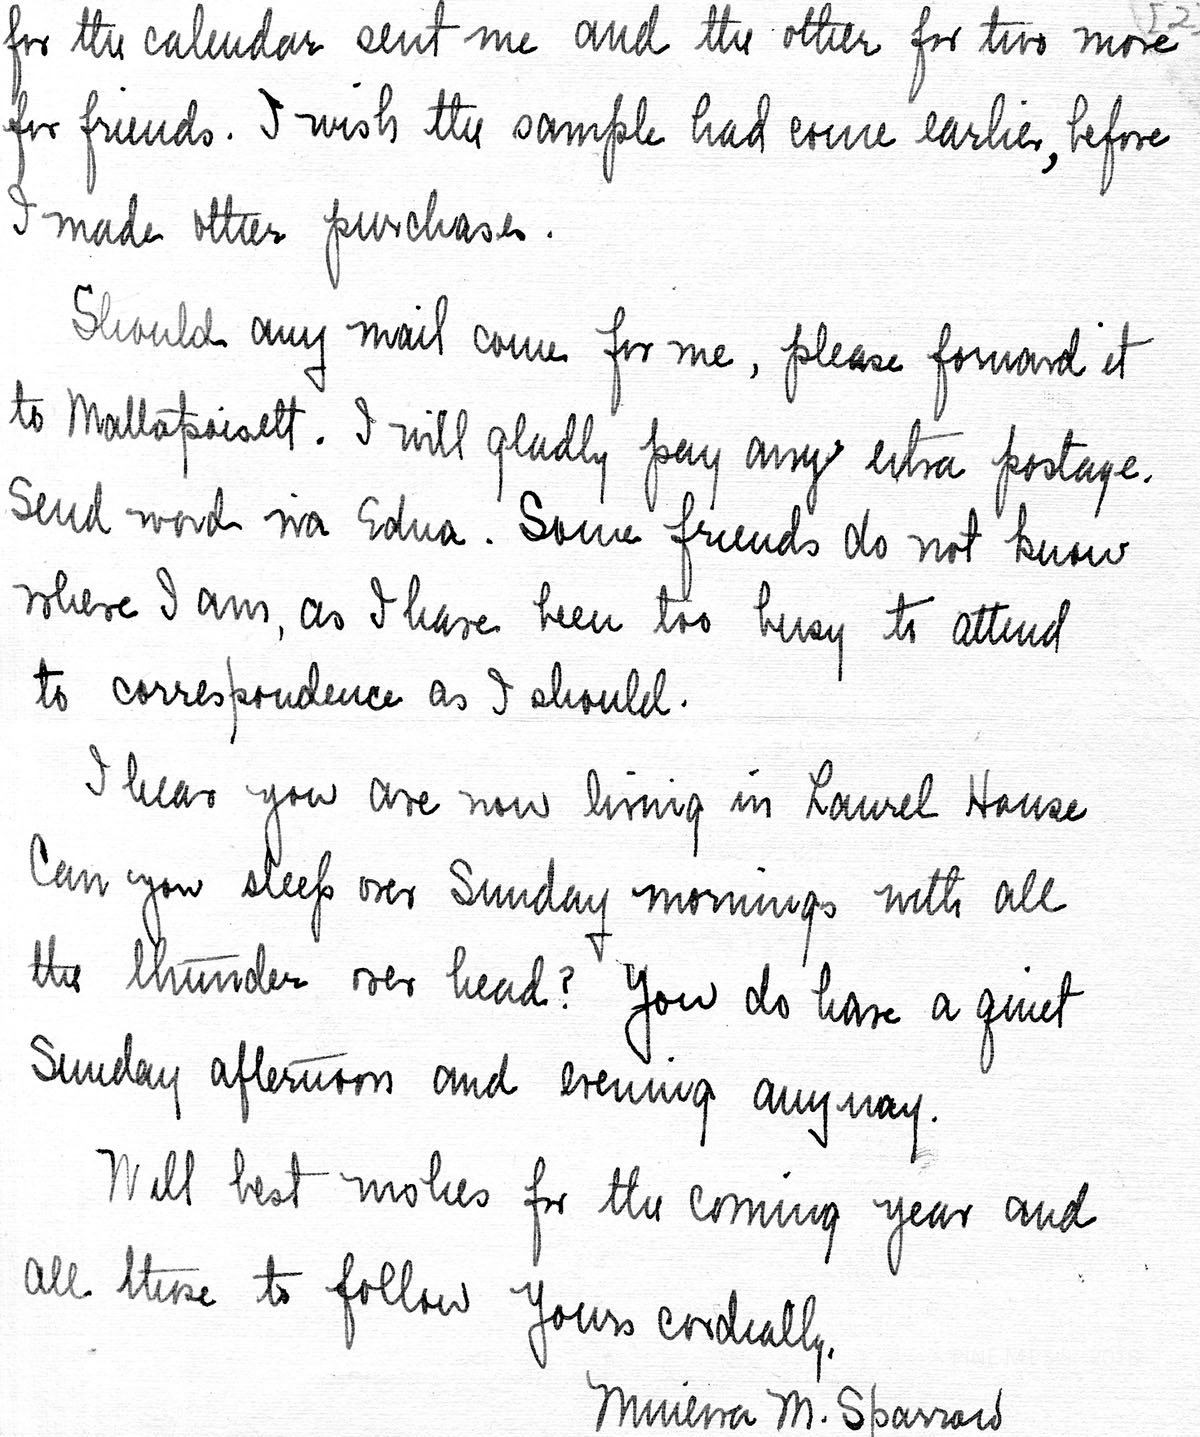 for the calendar sent me and the other for two more
for friends. I wish the sample had come earlier, before
I made other purchases.
Should any mail come for me, please forward it
to Mattapoisett. I will gladly pay any extra postage.
Send word via Edna. Some friends do not know
where I am, as I have been too busy to attend
to correspondence as I should.
I hear you are now living in Laurel House
Can you sleep over Sunday mornings with all
the thunder over head? You do have a quiet
Sunday afternoon and evening anyway.
With best wishes for the coming year and
all those to follow Yours cordially,
Minerva M. Sparrow